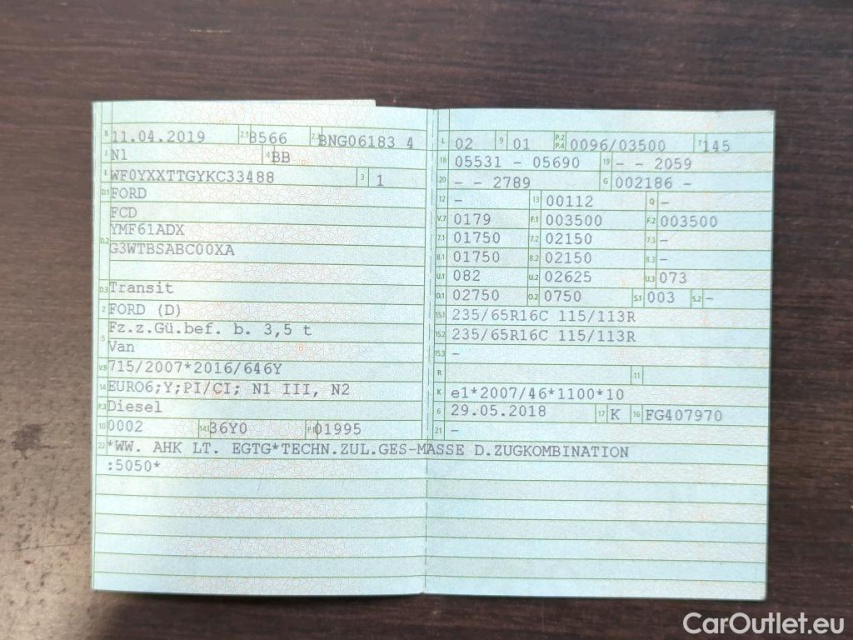 B 11.04.2019 2.1 8566 2.2 BNG06183 4
J N1 4 BB
E WF0YXXTTGYKC33488 3 1
D.1 FORD
FCD
YMF61ADX
D.2 G3WTBSABC00XA
D.3 Transit
2 FORD (D)
5 Fz.z.Gü.bef. b. 3,5 t
Van
V.9 715/2007*2016/646Y
14 EURO6;Y;PI/CI; N1 III, N2
P.3 Diesel
10 0002 14.1 36Y0 P.1 01995
22 *WW. AHK LT. EGTG*TECHN.ZUL.GES-MASSE D.ZUGKOMBINATION
:5050*
L 02 9 01 P.2 P.4 0096/03500 T 145
18 05531 - 05690 19 - - 2059
20 - - 2789 G 002186 -
12 - 13 00112 Q -
V.7 0179 F.1 003500 F.2 003500
7.1 01750 7.2 02150 7.3 -
8.1 01750 8.2 02150 8.3 -
U.1 082 U.2 02625 U.3 073
O.1 02750 O.2 0750 S.1 003 S.2 -
15.1 235/65R16C 115/113R
15.2 235/65R16C 115/113R
15.3 -
R 11
K e1*2007/46*1100*10
6 29.05.2018 17 K 16 FG407970
21 -
CarOutlet.eu